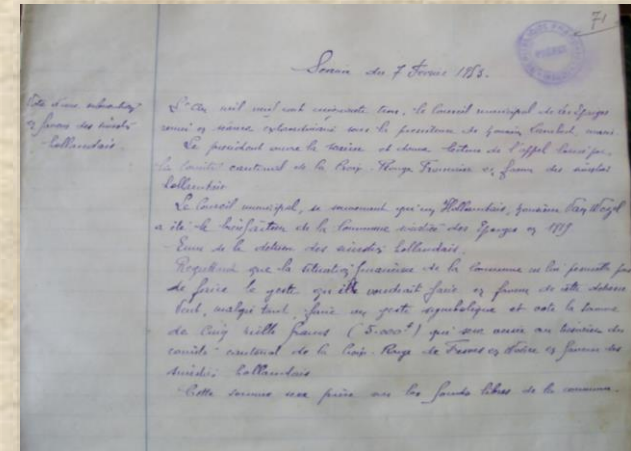 71
Séance du 7 Février 1953.
Vote d'une subvention
en faveur des sinistrés
hollandais.
L'An mil neuf cent cinquante trois, le Conseil municipal de les Eparges
réuni en séance extraordinaire sous la présidence de Lambert, maire.
Le président ouvre la séance et donne lecture de l'appel lancé par
le Comité cantonal de la Croix-Rouge Française en faveur des sinistrés
hollandais
Le Conseil municipal, se souvenant qu'un Hollandais,
a été le bienfaiteur de la Commune sinistrée des Eparges en 1919
Emu de la détresse des sinistrés hollandais,
Regrettant que la situation financière de la commune ne lui permette pas
de faire le geste qu'elle voudrait faire en faveur de cette détresse
Veut, malgré tout, faire un geste symbolique et vote la somme
de Cinq mille francs (5.000f) qui sera au trésorier du
comité cantonal de la Croix-Rouge de Fresnes en Woëvre en faveur des
sinistrés hollandais
Cette somme sera prise sur les fonds libres de la commune.